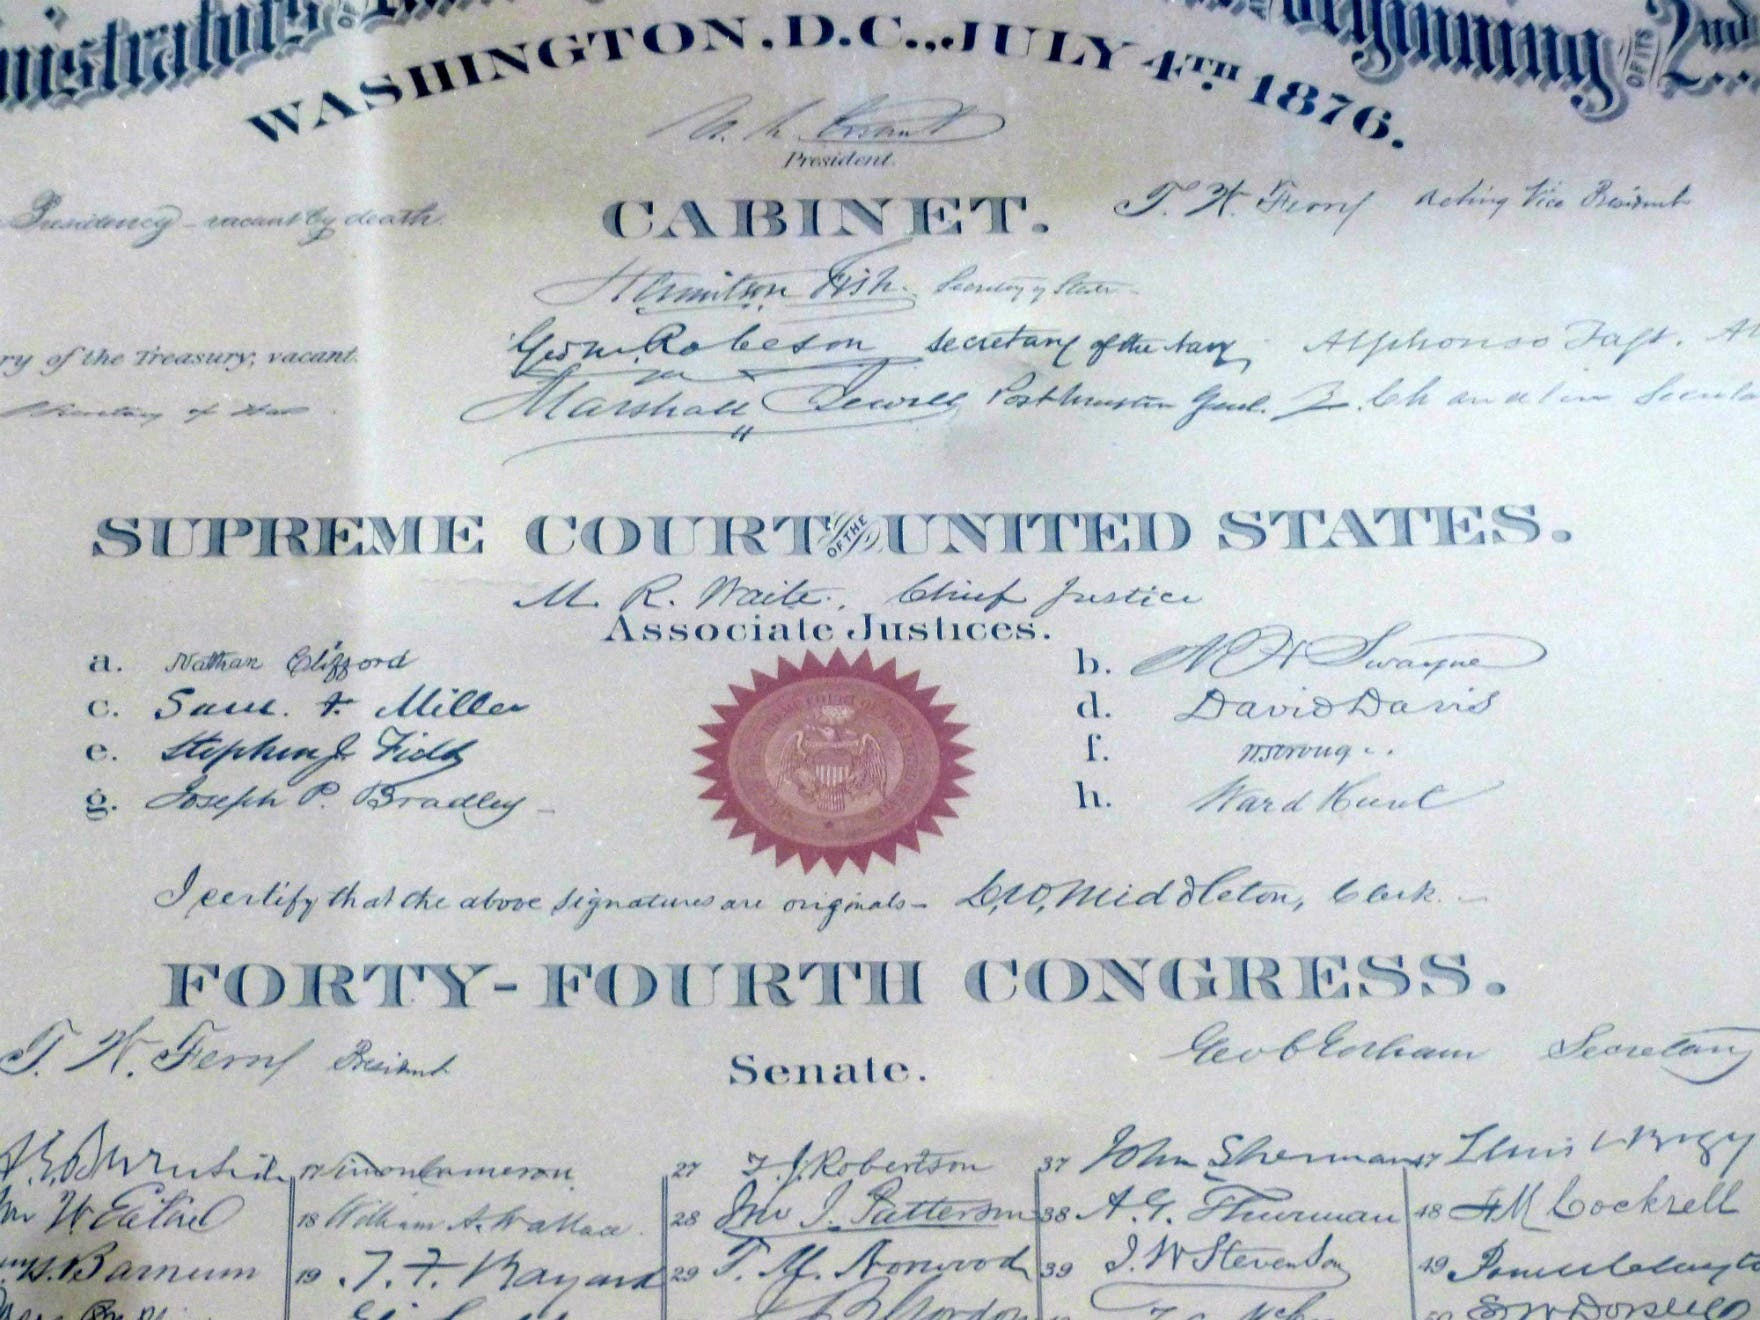 Beginning OF ITS 2nd
WASHINGTON, D.C., JULY 4TH 1876.
U. S. Grant
President.
Presidency - vacant by death. CABINET. T. W. Ferry Acting Vice President
Hamilton Fish. Secretary of State
ry of the Treasury, vacant. Geo M. Robeson Secretary of the Navy Alphonso Taft. At
Secretary of War Marshall Jewell Postmaster Genl. Z. Chandler Secreta
SUPREME COURT OF THE UNITED STATES.
M. R. Waite, Chief Justice
Associate Justices.
a. Nathan Clifford b. N H Swayne
c. Sam. F. Miller d. David Davis
e. Stephen J. Field f. W Strong
g. Joseph P. Bradley h. Ward Hunt
I certify that the above signatures are originals - D. W. Middleton, Clerk.
FORTY-FOURTH CONGRESS.
T. W. Ferry President Senate. Geo C Gorham Secretary
A. E. Burnside 17 Simon Cameron 27 T. J. Robertson 37 John Sherman 47 Lewis V Bogy
W. Eaton 18 William A. Wallace. 28 Jno J. Patterson 38 A. G. Thurman 48 F M Cockrell
H. Barnum 19 T. F. Bayard 29 T. M. Norwood 39 J. W Stevenson 49 Powell Clayto
Gordon S W Dorsey